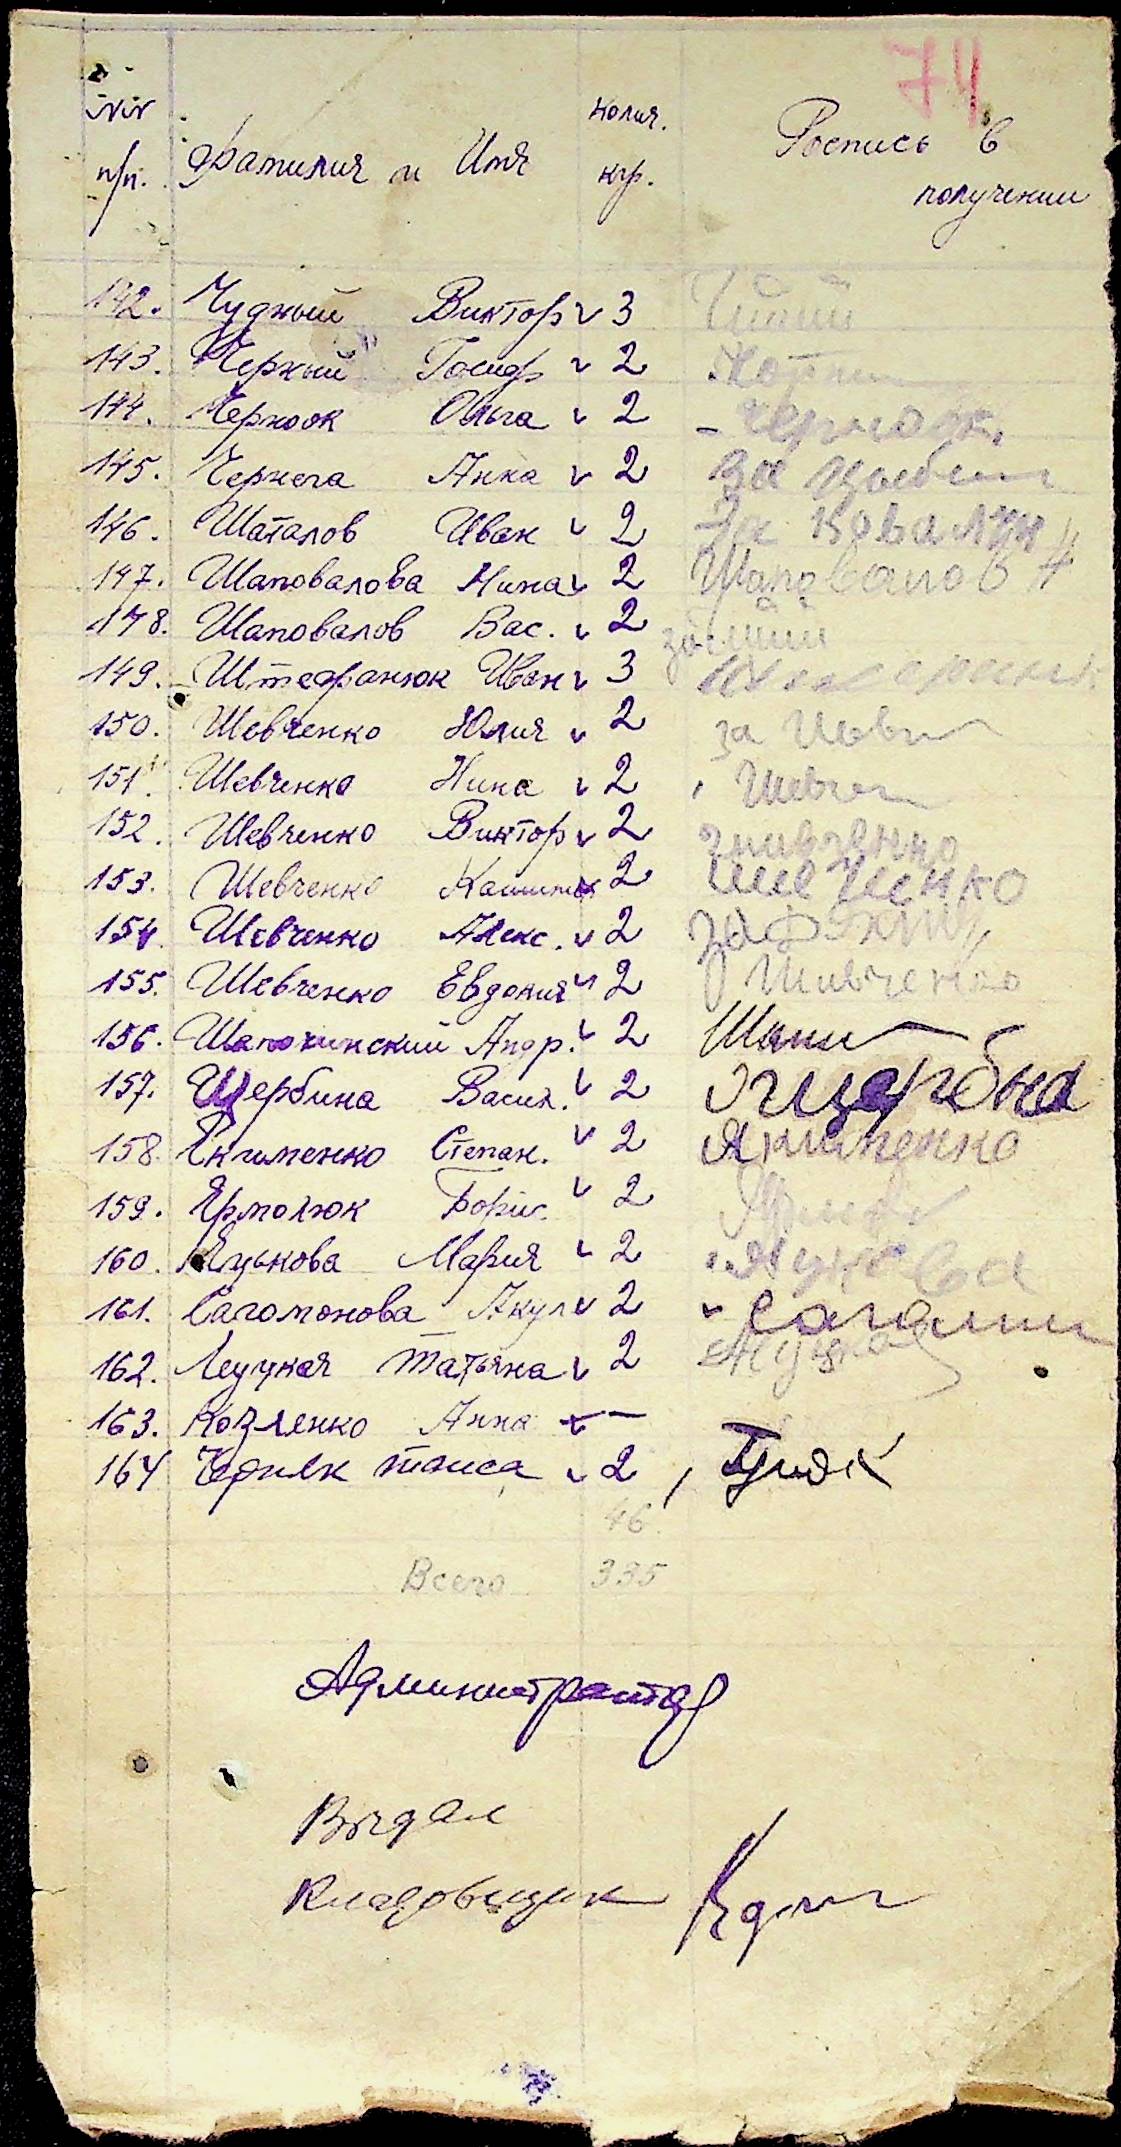 74
№№ п/п. Фамилия и Имя колич. кгр. Роспись в получении
142. Чудный Виктор v 3
143. Черный Иосиф v 2
144. Чернюк Ольга v 2 Чернюк
145. Чернега Анна v 2 За
146. Шаталов Иван v 2 За Ковалчук
147. Шаповалова Нина v 2 Шаповалов
148. Шаповалов Вас. v 2
149. Штефанюк Иван v 3
150. Шевченко Юлия v 2 за
151. Шевченко Нина v 2 Шевчен
152. Шевченко Виктор v 2 Шивченко
153. Шевченко 2 Шевченко
154. Шевченко Алекс. v 2 за
155. Шевченко Евдокия v 2 Шивченко
156. Шапочинский Андр. v 2
157. Щербина Васил. v 2 Щербина
158. Якименко Степан. v 2 Якименко
159. Ярмолюк Борис. v 2
160. Яцькова Мария v 2
161. Сагомонова Акул v 2
162. Луцкая Татьяна v 2
163. Козленко Анна —
164 Черняк Таиса v 2
46
Всего 335
Администратор
Выдал
Кладовщик